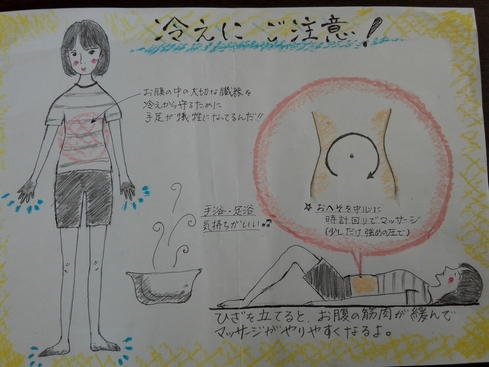 冷えにご注意!
お腹の中の大切な臓器を
冷えから守るために
手足が犠牲になってるんだ!!
手浴・足浴
気持ちがいい♫
☆おへそを中心に
時計回りでマッサージ
(少しだけ強めの圧で)
ひざを立てると、お腹の筋肉が緩んで
マッサージがやりやすくなるよ。